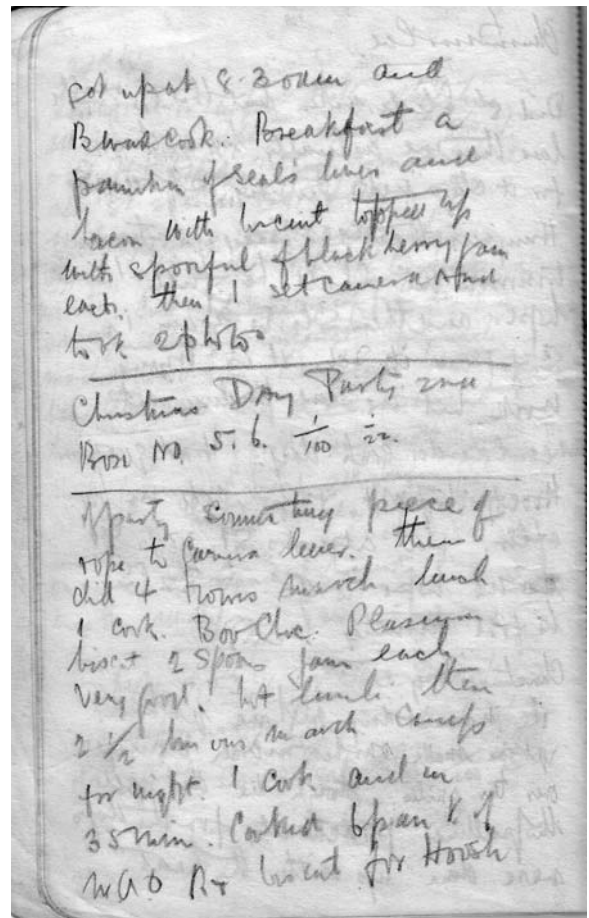 got up at 8.30am and
B was cook. Breakfast a
pannikin of seals liver and
bacon with biscuit topped up
with spoonful of blackberry jam
each. then I set camera and
took 2 photos
Christmas Day Party
Box No. 5. 6. 1/100 22.
of party connecting piece of
rope to camera lever. then
did 4 hours march lunch
I cook. Bov Choc. Plasmon
biscit 2 spoons jam each
very good! hot lunch. then
2 1/2 hours march camp
for night. I cook and in
35 min. Cooked
biscuit for Hoosh